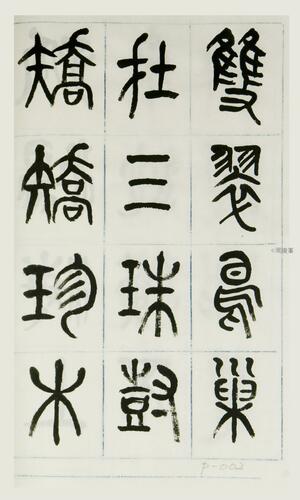 雙翠鳥巢
在三珠樹
矯矯珍木
P-002